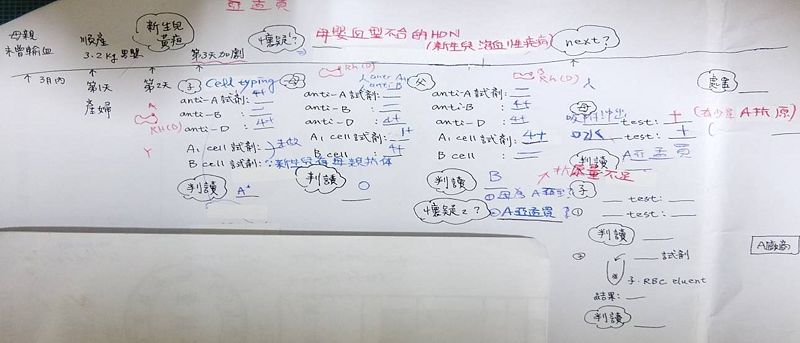 亞孟買
母親
未曾輸血
順產
3.2 kg 男嬰
新生兒
黃疸
第3天加劇
懷疑?
母嬰血型不合的HDN
(新生兒溶血性疾病)
next?
3月內
第1天
產婦
第2天
Rh(D)
子 Cell typing
anti-A 試劑: 4+
anti-B : =
anti-D : 4+
A₁ cell 試劑:
B cell 試劑:
未做
∵新生兒有母親抗体
判讀 A⁺
母
Rh(D)
anti-A試劑: =
anti-B : =
anti-D : 4+
A₁ cell 試劑: 1+
B cell : 4+
判讀 O
父
Rh(D)
anti-A 試劑: =
anti-B : 4+
anti-D : 4+
A₁ cell 試劑: 4+
B cell : =
判讀 B
懷疑2?
①母為A亞型?
②A亞孟買?
母
吸附沖出 test: + (有少量A抗原)
口水 test: +
判讀 A亞孟買
抗原量不足
子
① test:
test:
判讀
② 試劑
子.RBC eluent
結果:
判讀
處置
A廠商